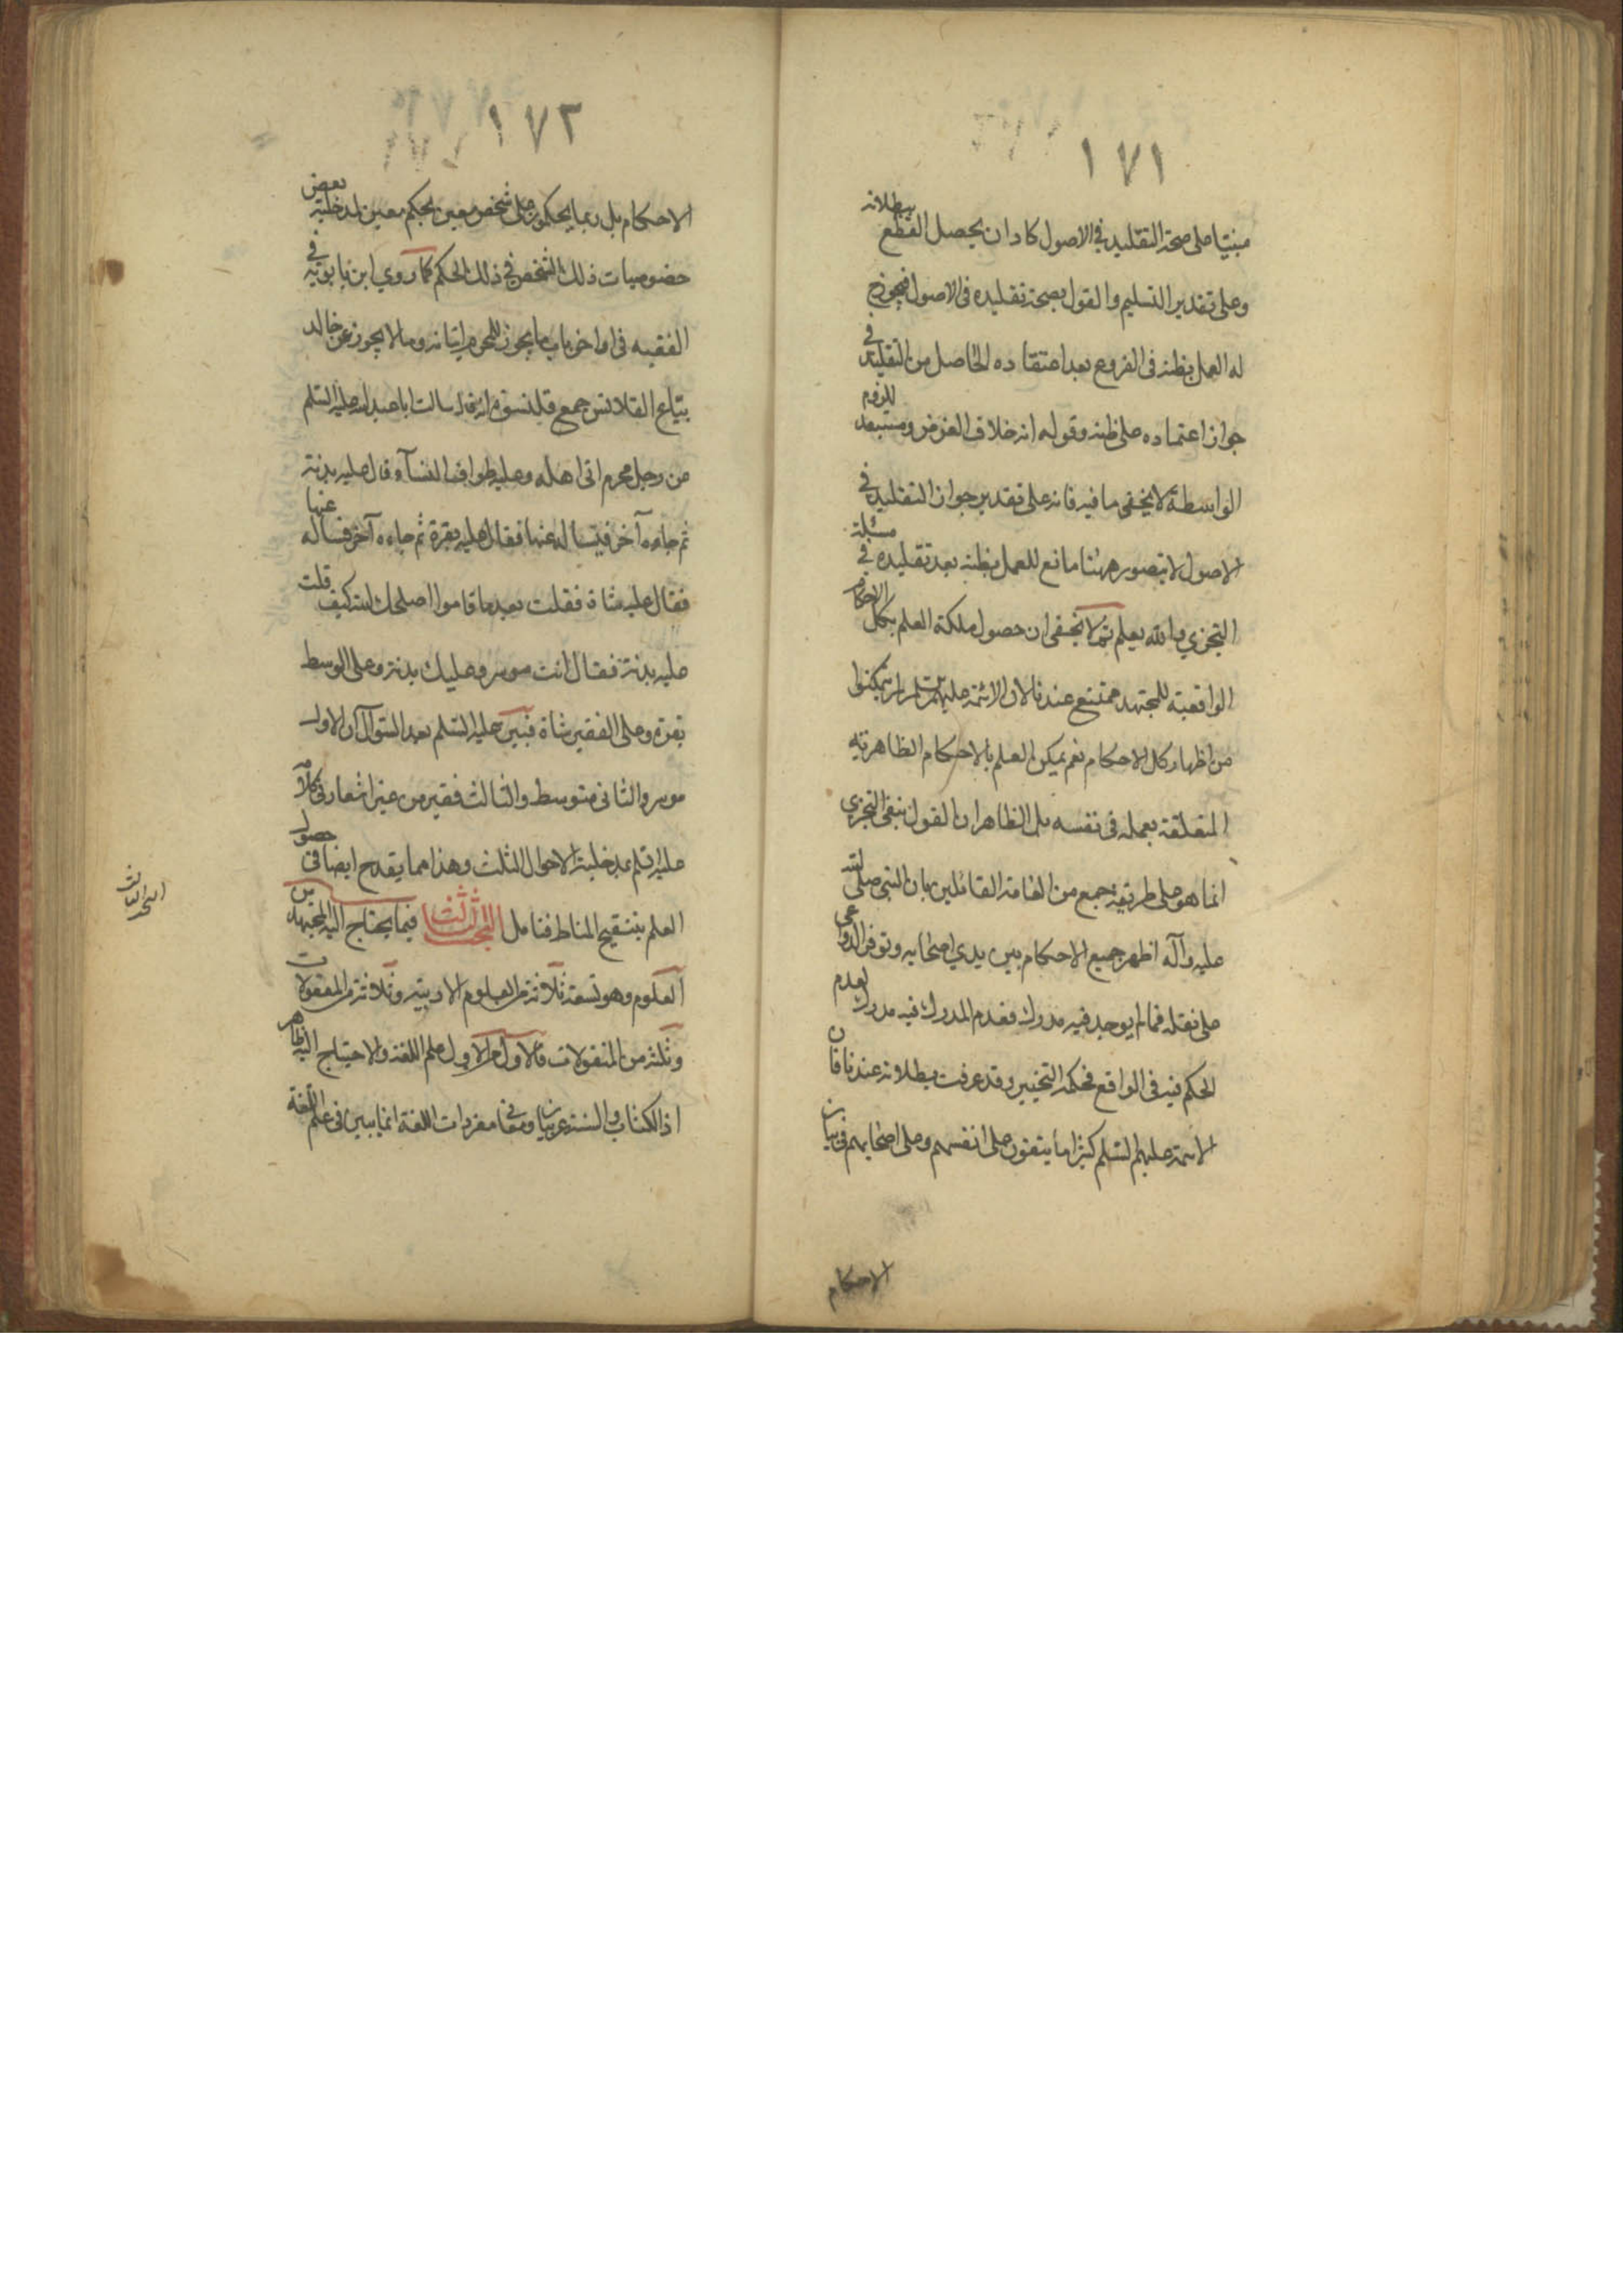 ١٧١
مبنيا على صحة التقليد في الاصول كاد ان يحصل القطع ببطلانه
وعلى تقدير التسليم والقول بصحة تقليده فى الاصول فيجوز
له العمل بظنه فى الفروع بعد اعتقاده الحاصل من التقليد فى
جواز اعتماده على ظنه وقوله انه خلاف الفرض ومستبعد للزوم
الواسطة لا يخفى ما فيه فانه على تقدير جواز التقليد في
الاصول لا يتصور ههنا مانع للعمل بظنه بعد تقليده في مسئلة
التجزي والله يعلم ثم لا يخفى ان حصول ملكة العلم بكل الاحكام
الواقعية للمجتهد ممتنع عندنا لان الائمة عليهم السلم لم يتمكنوا
من اظهار كل الاحكام نعم يمكن العلم بالاحكام الظاهرية
المتعلقة بعمله فى نفسه بل الظاهر ان القول بنفى التجزي
انما هو على طريقة جمع من العامة القائلين بان النبى صلى الله
عليه وآله اظهر جميع الاحكام بين يدي اصحابه وتوفر الدواعى
على نقله فما لم يوجد فيه مدرك فعدم المدرك فيه مدرك لعدم
الحكم فيه فى الواقع فحكمه التخيير وقد عرفت بطلانه عندنا فان
الائمة عليهم السلم كثيرا ما يتقون على انفسهم وعلى اصحابهم فى بيان
الاحكام
١٧٢
الاحكام بل ربما يحكمون على شخص معين بحكم معين لمدخلية بعض
خصوصيات ذلك الشخص في ذلك الحكم كما روي ابن بابويه في
الفقيه فى اواخر باب ما يجوز للمحرم اتيانه وما لا يجوز عن خالد
بياع القلانس جمع قلنسوة انه قال سالت ابا عبد الله عليه السلم
عن رجل محرم اتى اهله وعليه طواف النسآء قال عليه بدنة
ثم جاءه آخر فيسأله عنها فقال عليه بقرة ثم جاءه آخر فساله عنها
فقال عليه شاة فقلت بعد ما قاموا اصلحك الله كيف قلت
عليه بدنة فقال انت موسر وعليك بدنة وعلى الوسط
بقرة وعلى الفقير شاة فبين عليه السلم بعد السؤال ان الاول
موسر والثانى متوسط والثالث فقير من غير اشعار فى كلامه
عليه السلم بمدخلية الاحوال الثلث وهذا مما يقدح ايضا فى حصول
العلم بتنقيح المناط فتامل البحث الثالث فيما يحتاج اليه المجتهد من
العلوم وهو تسعة ثلاثة من العلوم الادبية وثلاثة من المعقولات
وثلثه من المنقولات فالاول من الاول علم اللغة والاحتياج اليه ظاهر
اذ الكتاب والسنة عربيان ومعانى مفردات اللغة انما يبين فى علم اللغة
البحث الثالث